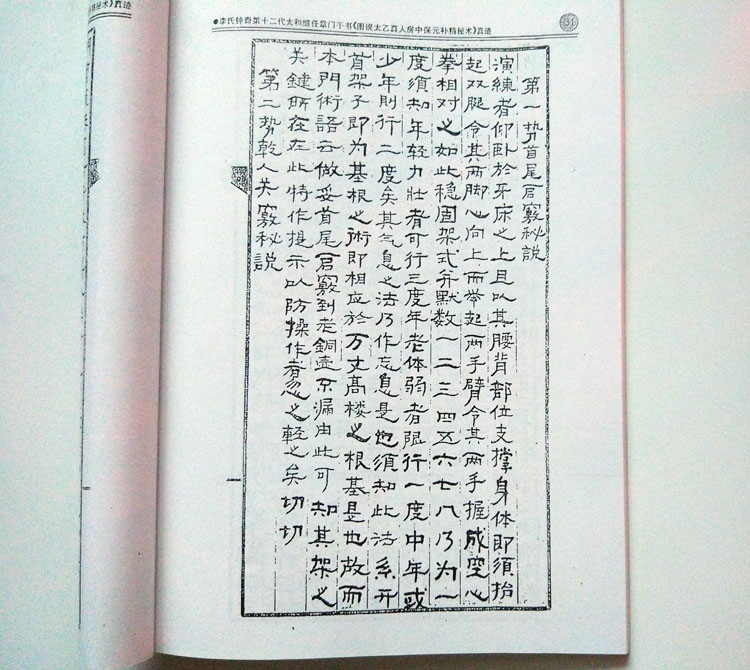 ●李氏钟奇第十二代太和继任掌门手书《图说太乙真人房中保元补精秘术》真迹
31
第一势首尾窍秘説
演練者仰卧於牙床之上且以其腰背部位支撑身体即須抬
起双腿令其两脚心向上而举起两手臂令其两手握成空心
拳相对之如此稳固架式并默数一二三四五六七八乃为一
度須知年轻力壮者可行三度年老体弱者限行一度中年或
少年則行二度矣其气息之法乃作忘息是也須知此法系开
首架子即为基根之術即相应於万丈高楼之根基是也故而
本門術語云做妥首尾窍到老銅壶不漏由此可知其架之
关鍵所在在此特作提示以防操作者忽之輕之矣切切
第二势乾人关窍秘説
秘术》真迹